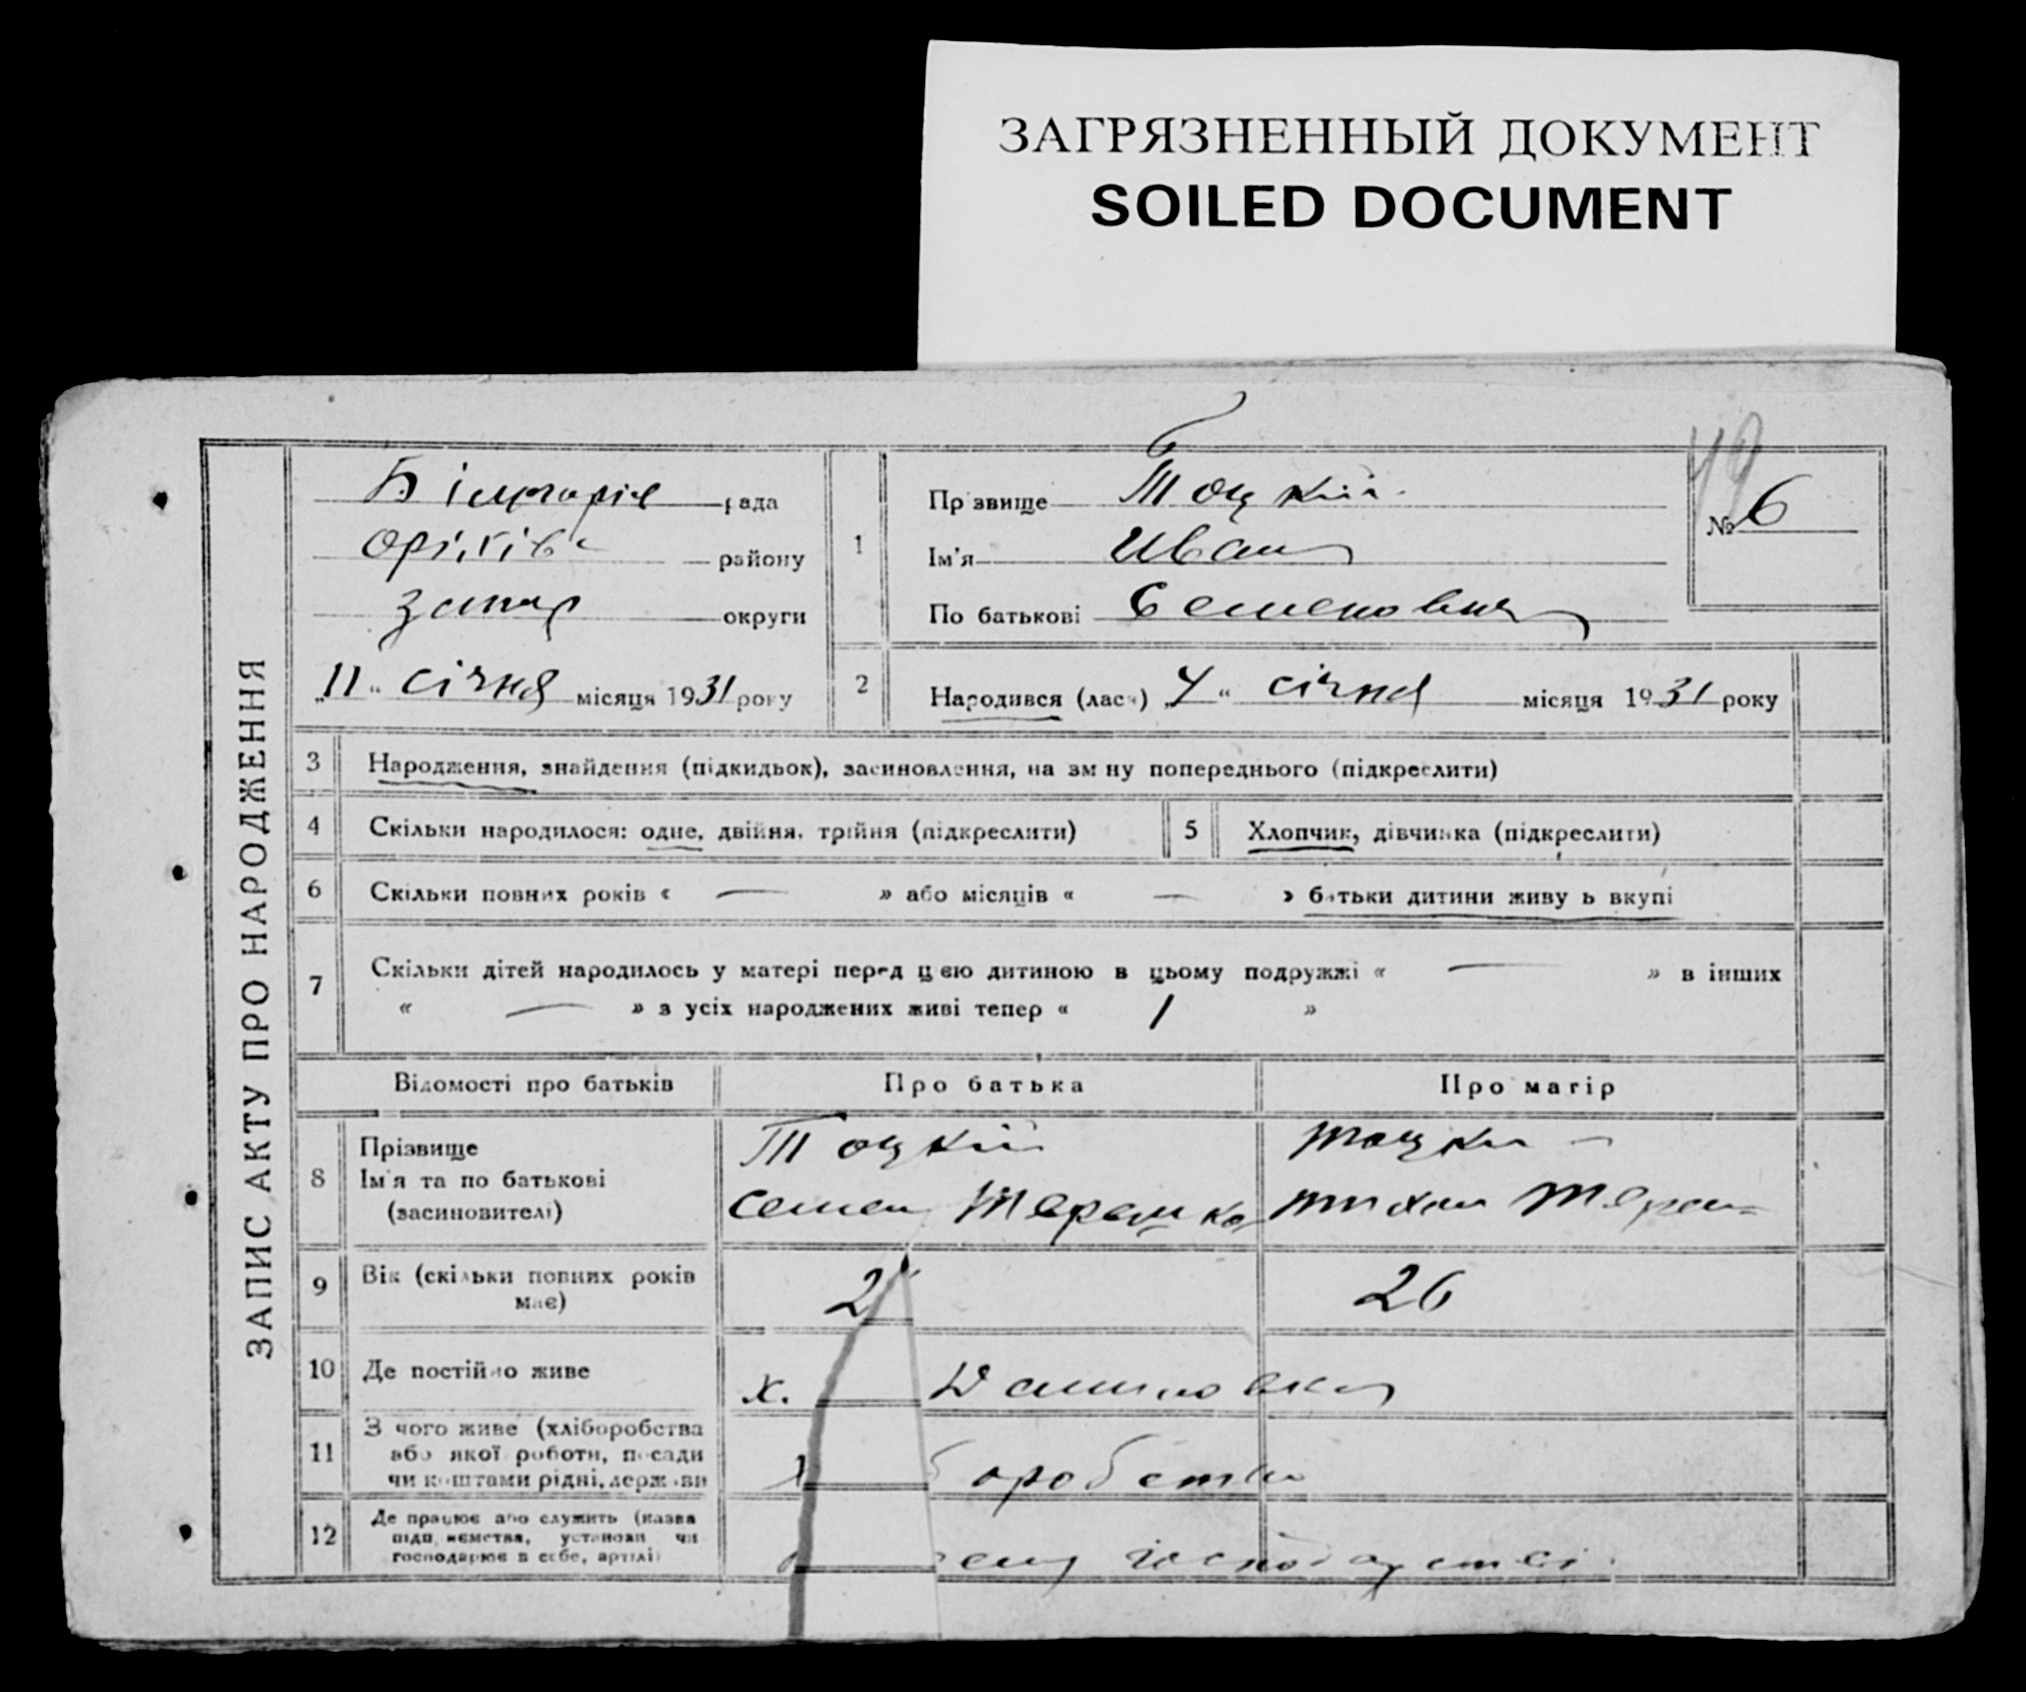 ЗАГРЯЗНЕННЫЙ ДОКУМЕНТ
SOILED DOCUMENT
ЗАПИС АКТУ ПРО НАРОДЖЕННЯ
рада
району
округи
„11“ січня місяця 1931 року
49
№ 6
1
Прізвище Тоцкий
Ім'я Иван
По батькові Семенович
2 Народився (лась) „4“ січня місяця 1931 року
3 Народження, знайдення (підкидьок), засиновлення, на зміну попереднього (підкреслити)
4 Скільки народилося: одне, двійня, трійня (підкреслити)
5 Хлопчик, дівчинка (підкреслити)
6 Скільки повних років « — » або місяців « — » батьки дитини живуть вкупі
7 Скільки дітей народилось у матері перед цією дитиною в цьому подружжі « — » в інших
« — » з усіх народжених живі тепер « 1 »
Відомості про батьків Про батька Про матір
8 Прізвище Тоцкий
Ім'я та по батькові
(засиновителі) Семен
9 Вік (скільки повних років 2 26
має)
10 Де постійно живе х.
11 З чого живе (хліборобства
або якої роботи, посади
чи коштами рідні, держави
12 Де працює або служить (назва
підприємства, установи чи
господарює в себе, артілі)